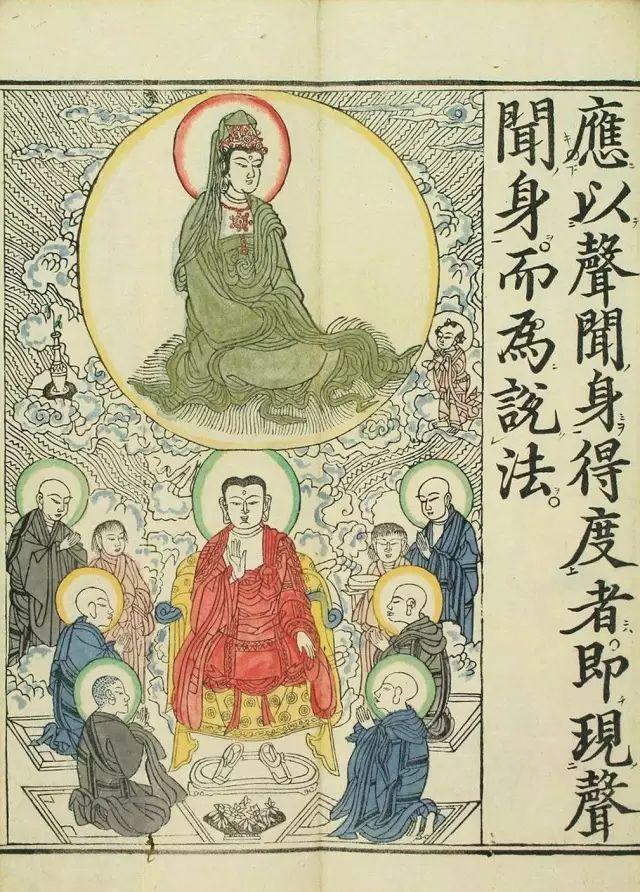 應以聲聞身得度者即現聲
聞身而為說法